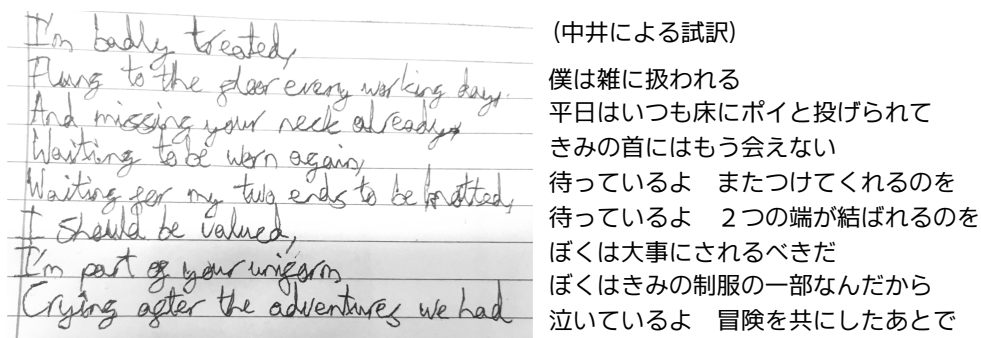 I'm badly treated,
Flung to the floor every working day,
And missing your neck already,
Waiting to be worn again,
Waiting for my two ends to be knotted,
I should be valued,
I'm part of your uniform,
Crying after the adventures we had
(中井による試訳)
僕は雑に扱われる
平日はいつも床にポイと投げられて
きみの首にはもう会えない
待っているよ　またつけてくれるのを
待っているよ　２つの端が結ばれるのを
ぼくは大事にされるべきだ
ぼくはきみの制服の一部なんだから
泣いているよ　冒険を共にしたあとで